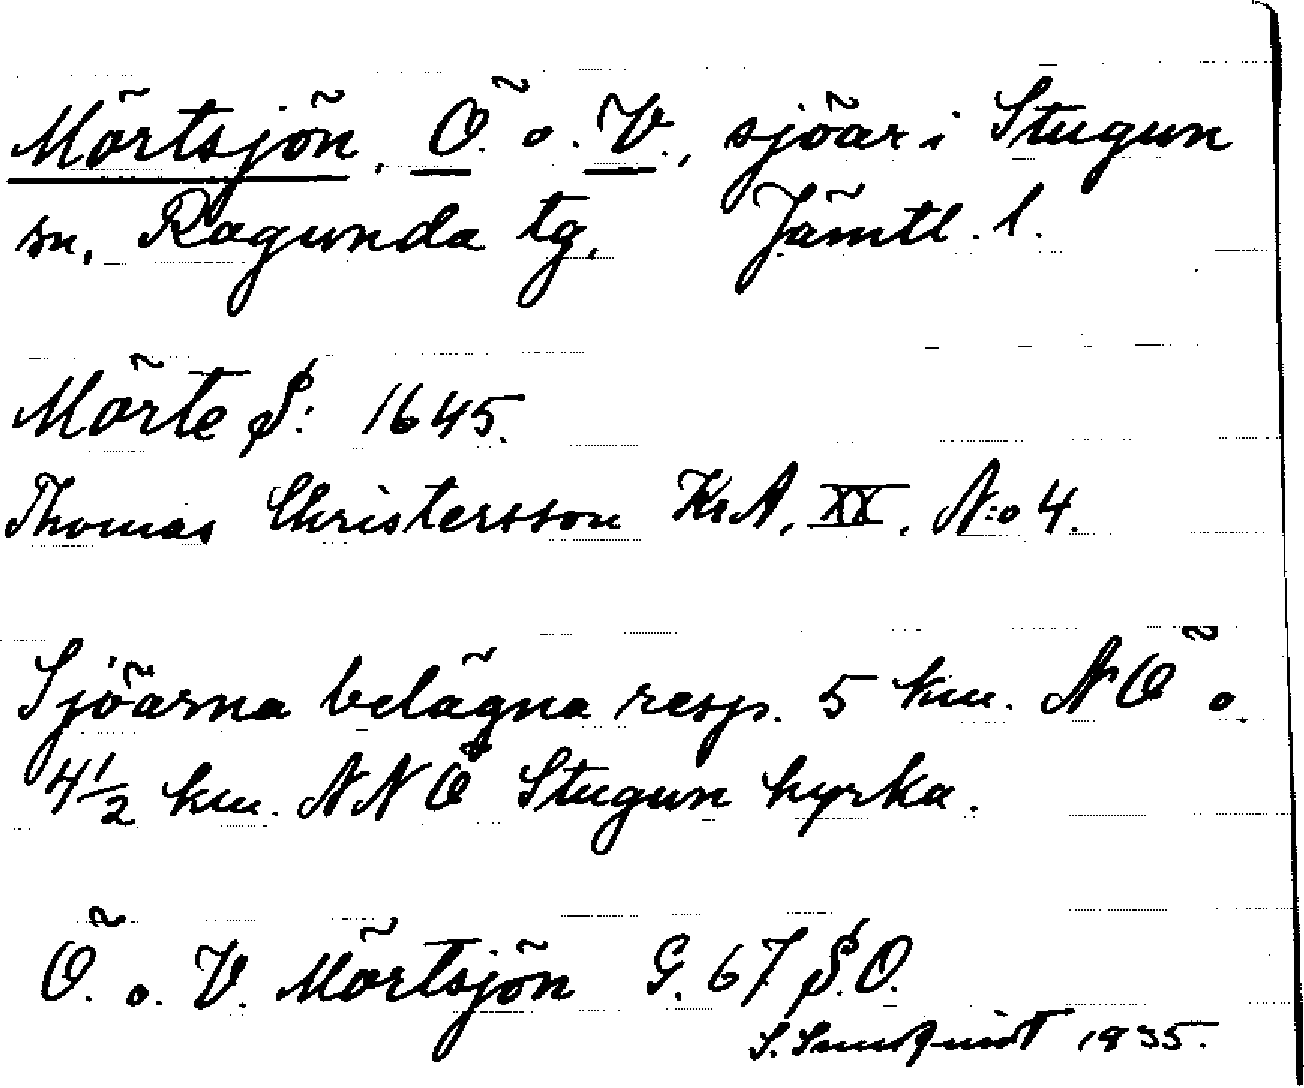 Mörtsjön, Ö. o. V., sjöar i Stugun
sn, Ragunda tg, Jämtl. l.
Mörte S: 1645.
Thomas Christersson KrA, XX, N:o 4.
Sjöarna belägna resp. 5 km. NÖ o.
4 1/2 km. NNÖ Stugun kyrka.
Ö. o. V. Mörtsjön G. 67 S.O.
S. 1935.